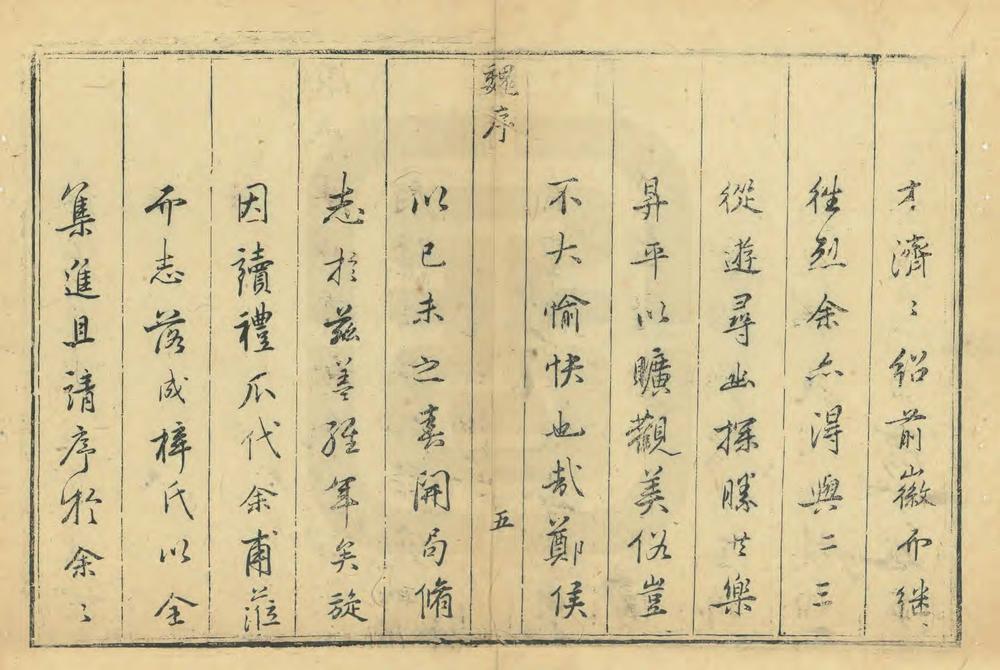 才濟〻紹前徽而継〻
徃烈余亦得與二三
從遊尋幽探勝共樂
昇平以曠觀美俗豈
不大愉快也哉鄭侯
魏序
五
以已未之春開局脩
志扵茲盖經年矣旋
因讀禮瓜代余甫蒞
而志落成梓氏以全
集進且請序扵余〻